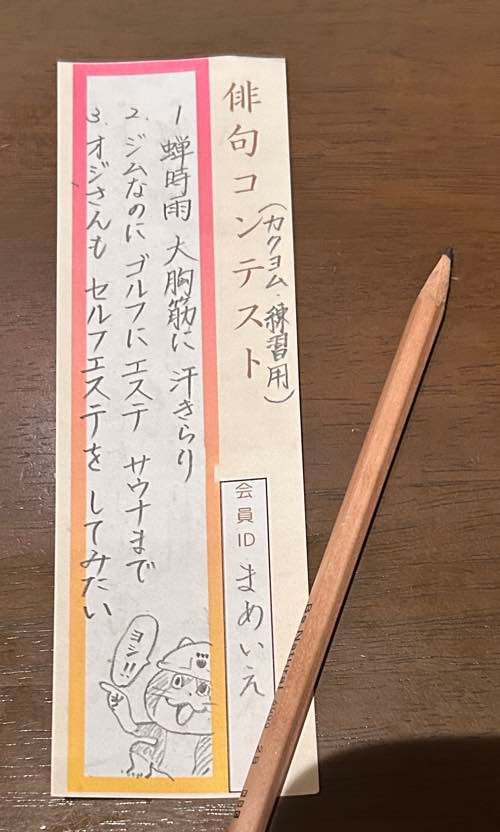 俳句コンテスト
(カクヨム・練習用)
1 蝉時雨 大胸筋に 汗きらり
2. ジムなのに ゴルフに エステ サウナまで
3. オジさんも セルフエステを してみたい
会員ID まめいえ
ヨシ!!